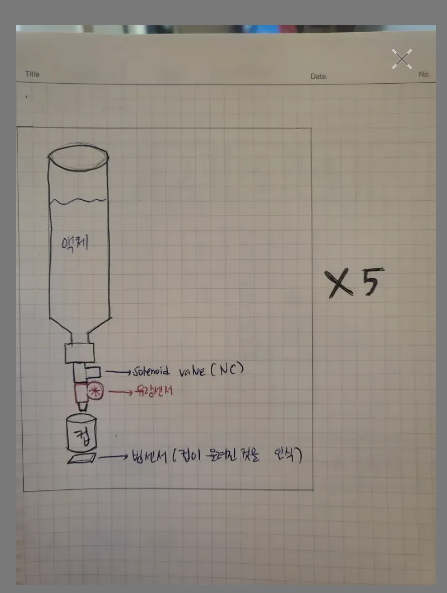 Title
Date.
No.
액체
X5
→ Solenoid valve (NC)
→ 유량센서
컵
→ 빛센서 (컵이 올려진 것을 인식)